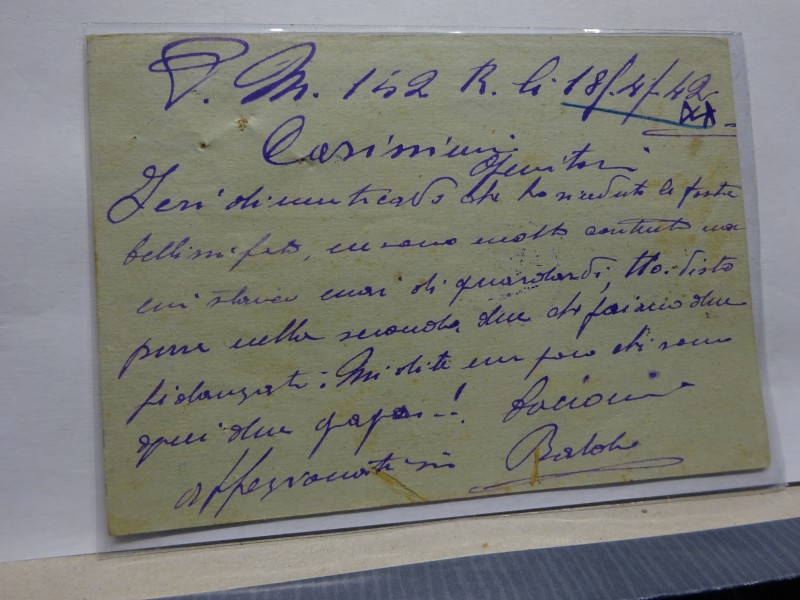 P. M. 152 R. li 18/4/42 XX
Carissimi
Genitori
Ieri dimenticavo che ho ricevuto le foste
bellissi foto, mi sono molto contento non
mi stava mai di guardarli, Ho visto
pure nella seconda due che faiano due
fidanzati. Mi dite un poco chi sono
quei due papa.! Bacioni
affezionatissi